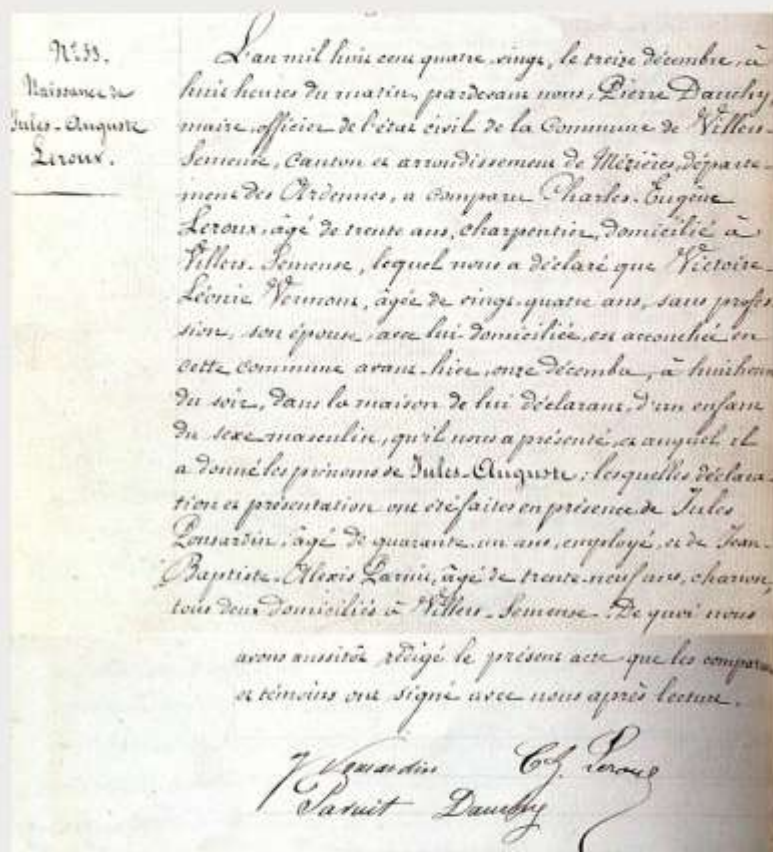 N° 53.
Naissance de
Jules-Auguste
Leroux.
L'an mil huit cent quatre vingt, le treize décembre, à
huit heures du matin, pardevant nous, Pierre Dauchy,
maire, officier de l'état civil de la Commune de Villers-
Semeuse, Canton et arrondissement de Mézières, départe-
ment des Ardennes, a comparu Charles-Eugène
Leroux, âgé de trente ans, charpentier, domicilié à
Villers-Semeuse, lequel nous a déclaré que Victoire-
Léonie Vermont, âgée de vingt-quatre ans, sans profes-
sion, son épouse, avec lui domiciliée, est accouchée en
cette commune avant-hier, onze décembre, à huit heures
du soir, dans la maison de lui déclarant, d'un enfant
du sexe masculin, qu'il nous a présenté, et auquel il
a donné les prénoms de Jules-Auguste; lesquelles déclara-
tion et présentation ont été faites en présence de Jules
Ponsardin, âgé de quarante-un ans, employé, et de Jean-
Baptiste-Alexis Paruit, âgé de trente-neuf ans, charron,
tous deux domiciliés à Villers-Semeuse. De quoi nous
avons aussitôt rédigé le présent acte que les comparant
et témoins ont signé avec nous après lecture.
J Ponsardin Ch. Leroux
Paruit Dauchy